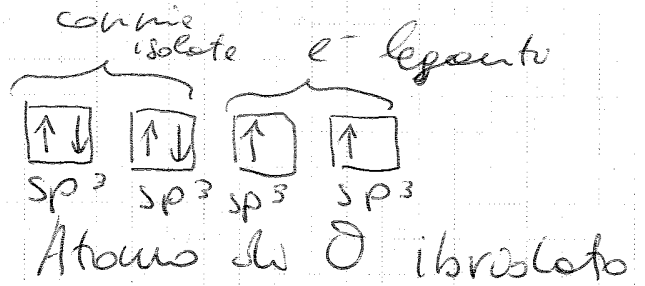 coppie
isolate e⁻ leganti
↑↓ ↑↓ ↑ ↑
sp³ sp³ sp³ sp³
Atomo di O ibridato